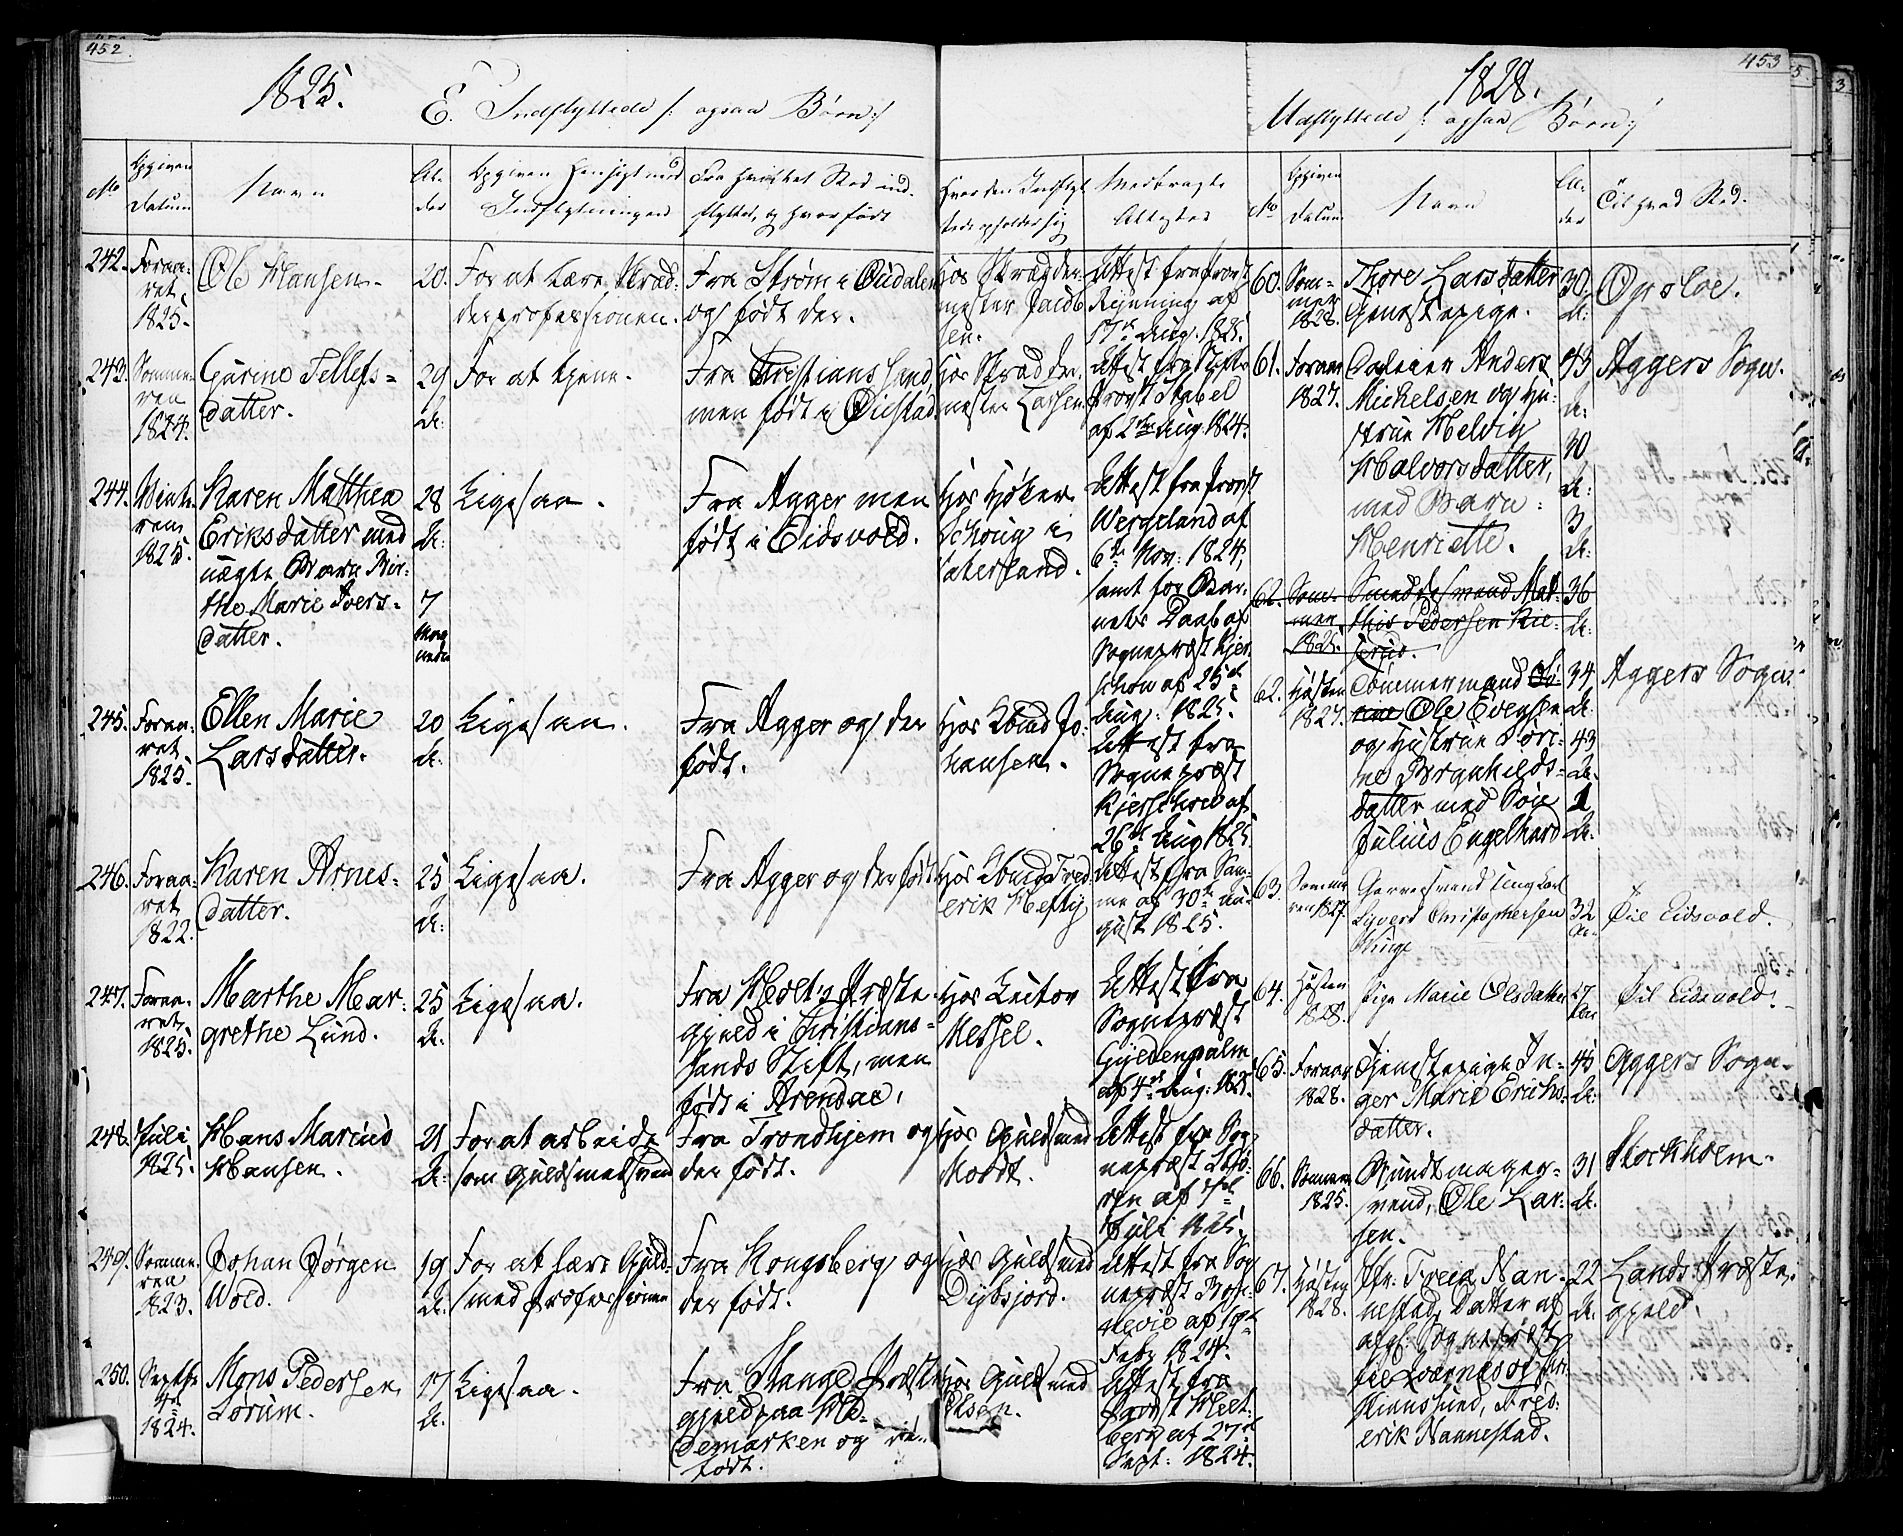 452.
1825.
E. Indflyttede /: ogsaa Børn :/
No
Opgiven Datum
Navn
Alder
Opgiven Hensigt med Indflytningen
Fra hvilket Sted indflyttet, og hvor født
Hvor den Indflyttede opholder sig
Medbragte Attester
242.
Foraaret 1825.
Ole Hansen.
20.
For at lære Skrædderprofessionen.
Fra Strøm i Oudalen og født der.
Hos Skræddermester Jacobsen.
Attest fra Provst Rynning af 17de Aug. 1825.
243.
Sommeren 1824.
Gurine Tellefsdatter.
29 A:
For at tjene.
Fra Christianssand men født i Øiestad
Hos Skræddermester Larsen
Attest fra Stiftsprovst Stabel af 2den Aug. 1824.
244.
Vinteren 1825.
Karen Mathea Eriksdatter med uægte Barn Birthe Marie Iversdatter.
28 A:
7 Maaneder
Ligesaa.
Fra Agger men født i Eidsvold.
Hos Høker Schoug i Vaterland.
Attest fra Provst Wergeland af 6te Nov: 1824, samt for Barnets Daab af Sognepræst Kjerschow af 25de Aug: 1825.
245.
Foraaret 1825.
Ellen Marie Larsdatter.
20 A:
Ligesaa.
Fra Agger og der født.
Hos Kbmd Johansen.
Attest fra Sognepræst Kjerschow af 26de Aug 1825
246.
Foraaret 1822.
Karen Arnesdatter.
25 A:
Ligesaa.
Fra Agger og der født
Hos Kbmd Frederik Hefty
Attest fra Samme af 30te August 1825.
247.
Foraaret 1825.
Marthe Margrethe Lund.
25 A:
Ligesaa.
Fra Holt's Præstegjeld i Christianssands Stift, men født i Arendal.
Hos Lector Messel.
Attest fra Sognepræst Gyldenpalm af 4de Aug: 1825.
248.
Juli 1825.
Hans Marius Hansen.
21 A:
For at arbeide som Guldsmedsvend
Fra Trondhjem og der født.
Hos Guldsmed Mordt.
Attest fra Sognepræst
Juli 1825.
249.
Sommeren 1823.
Johan Jørgen Wold.
19 A:
For at lære Guldsmed professionen
Fra Kongsberg og der født.
Hos Guldsmed Dybsjord.
Attest fra Sognepræst
Feby 1824.
250.
Septbr 4de 1824.
Mons Pedersen Lorum.
17 A:
Ligesaa.
Fra Stange Præstegjeld paa Hedemarken og der født.
Hos Guldsmed Olsen.
Attest fra Provst Heltberg af 27de Sept: 1824.
453
1828.
Udflyttede /: ogsaa Børn :/
No
Opgiven Datum
Navn
Alder
Til hvad Sted.
60.
Sommer 1828.
Thore Larsdatter Tjenestepige.
30 A:
Opsloe.
61.
Foraar 1827.
Anders Michelsen og Hustrue Helvig Halvorsdatter, med Barn: Henriette.
43 A:
30 A:
3 A:
Aggers Sogn.
62.
Sommer 1825.
Smedesvend Matthis Pedersen
36 A:
62.
Høsten 1827.
Tømmermand Ole Evensen og Hustrue Brynhildsdatter med Søn Julius Engelhard
34 A:
43 A:
1 A:
Aggers Sogn.
63.
Sommeren 1827.
Garversvend Ungkarl Syvert Christophersen
32 A:
Til Eidsvold.
64.
Høsten 1828.
Pige Marie Olsdatter
27 Aar
Til Eidsvold.
65.
Foraar 1828.
Tjenestepige Inger Marie Erichsdatter.
45 A:
Aggers Sogn.
66.
Sommer 1825.
Bundtmagersvend, Ole Larsen.
31 A.
Stockholm.
67.
Høsten 1828.
Jfr: Nannestad, Datter af afg: Sognepræst til Qvernes og Christianssund, Frederik Nannestad.
22 A.
Lands Præstegjeld.